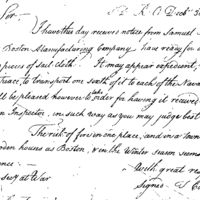 D. R. O. Dec
Sir
I have this day received notice from Samuel
Boston Manufacturing Company have ready for d
pieces of sail cloth. It may appear expedient,
to transport one sixth of it to each of the Nava
will be pleased however to order for having it received
an Inspector, in such way as you may judge best
The risk of fire in one place, and in a town
wooden houses as Boston, & in the winter seem
nce:—
with great res
Secy at War
Signed